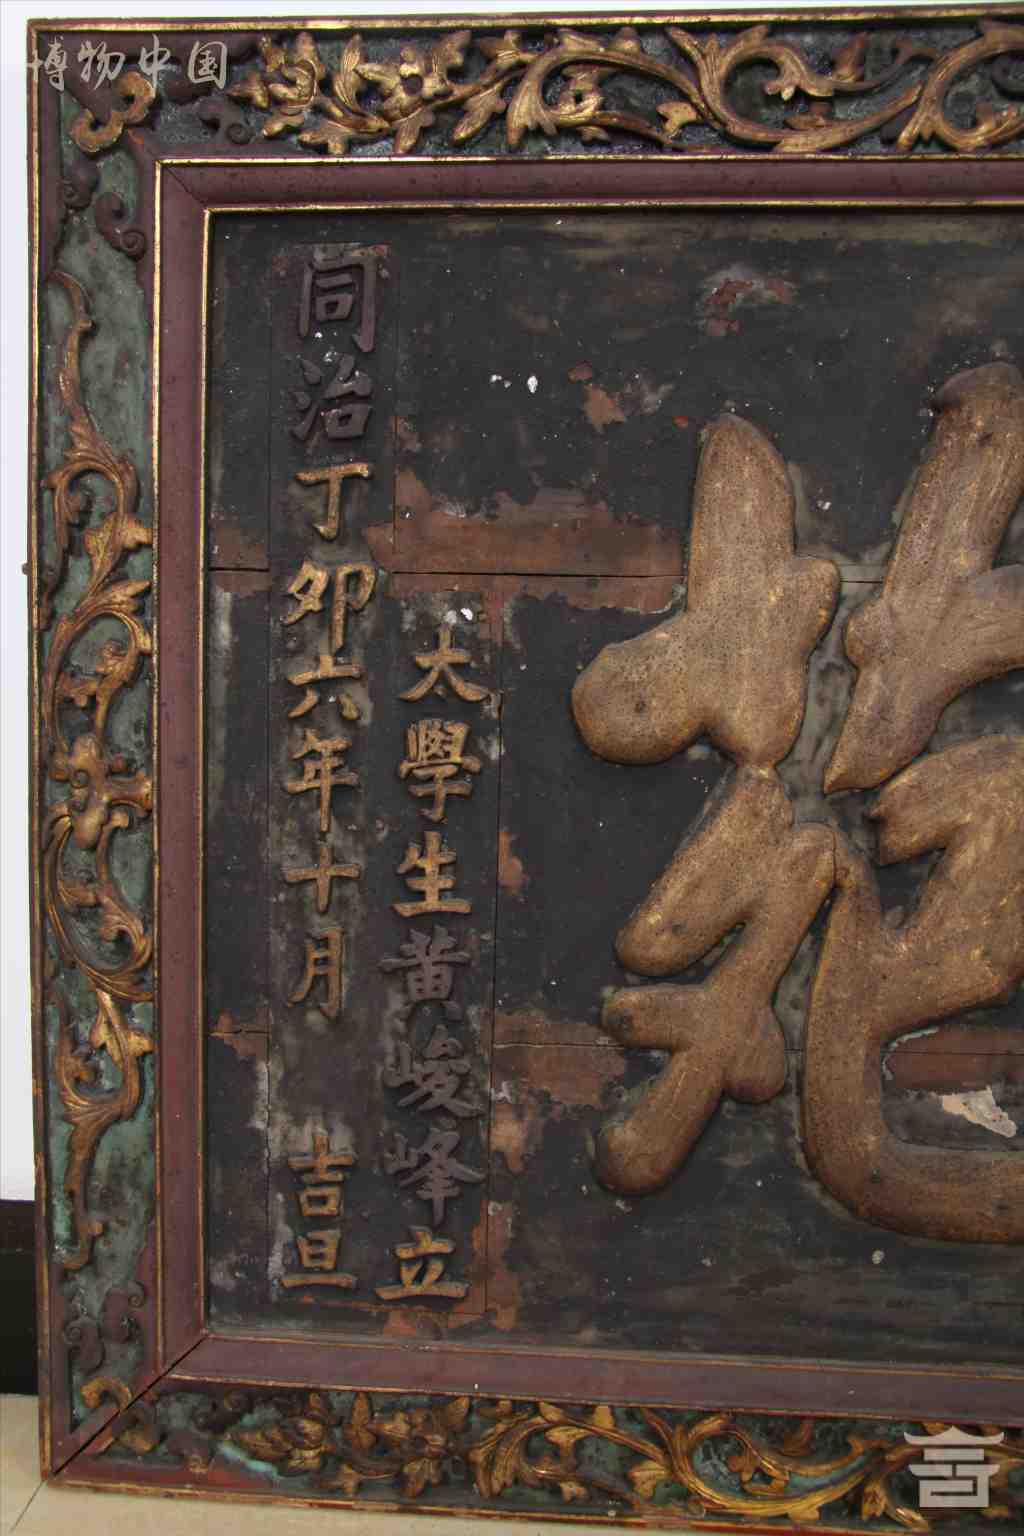 博物中国
太學生黄峻峰立
同治丁卯六年十月 吉旦